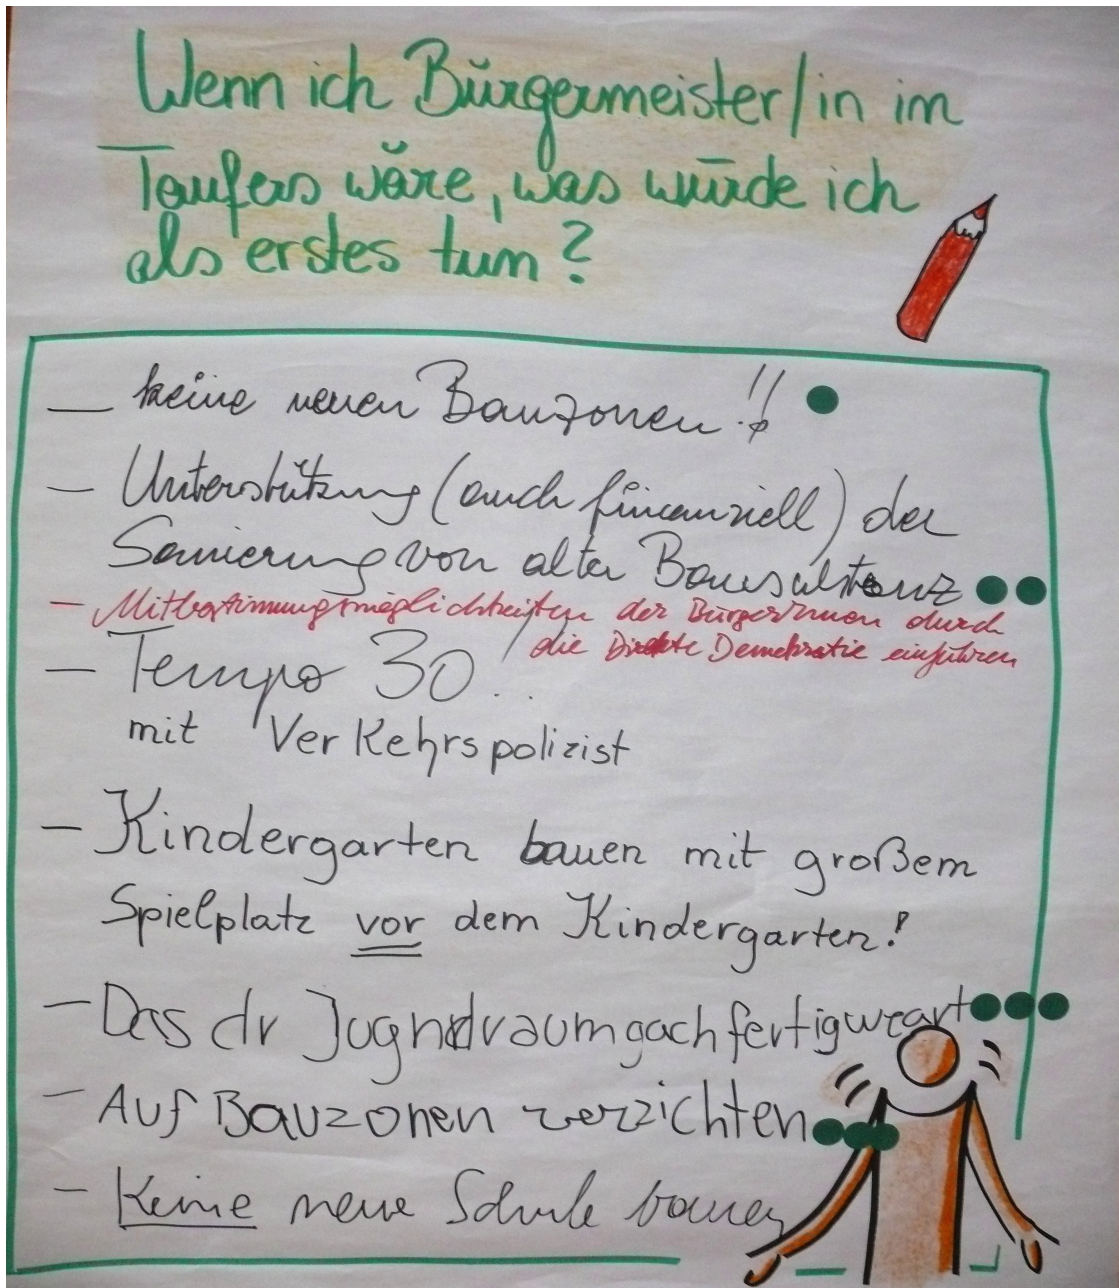 Wenn ich Bürgermeister/in im
Taufers wäre, was würde ich
als erstes tun?
— keine neuen Bauzonen!!
— Unterstützung (auch finanziell) der
Sanierung von alter Bausubstanz
— Mitbestimmungsmöglichkeiten der BürgerInnen durch
die Direkte Demokratie einführen
— Tempo 30...
mit Verkehrspolizist
— Kindergarten bauen mit großem
Spielplatz vor dem Kindergarten!
— Das dr Jugndraum gach fertig weart
— Auf Bauzonen verzichten
— Keine neue Schule bauen